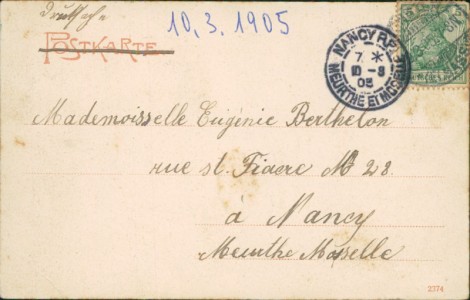 Drucksache
10.3.1905
POSTKARTE
NANCY R.P.
7 *
10 - 3
05
MEURTHE ET MOSELLE
5
Mademoisselle Eugénie Berthelon
rue st. Fiacre № 28.
à Nancy
Meurthe Moselle
2374